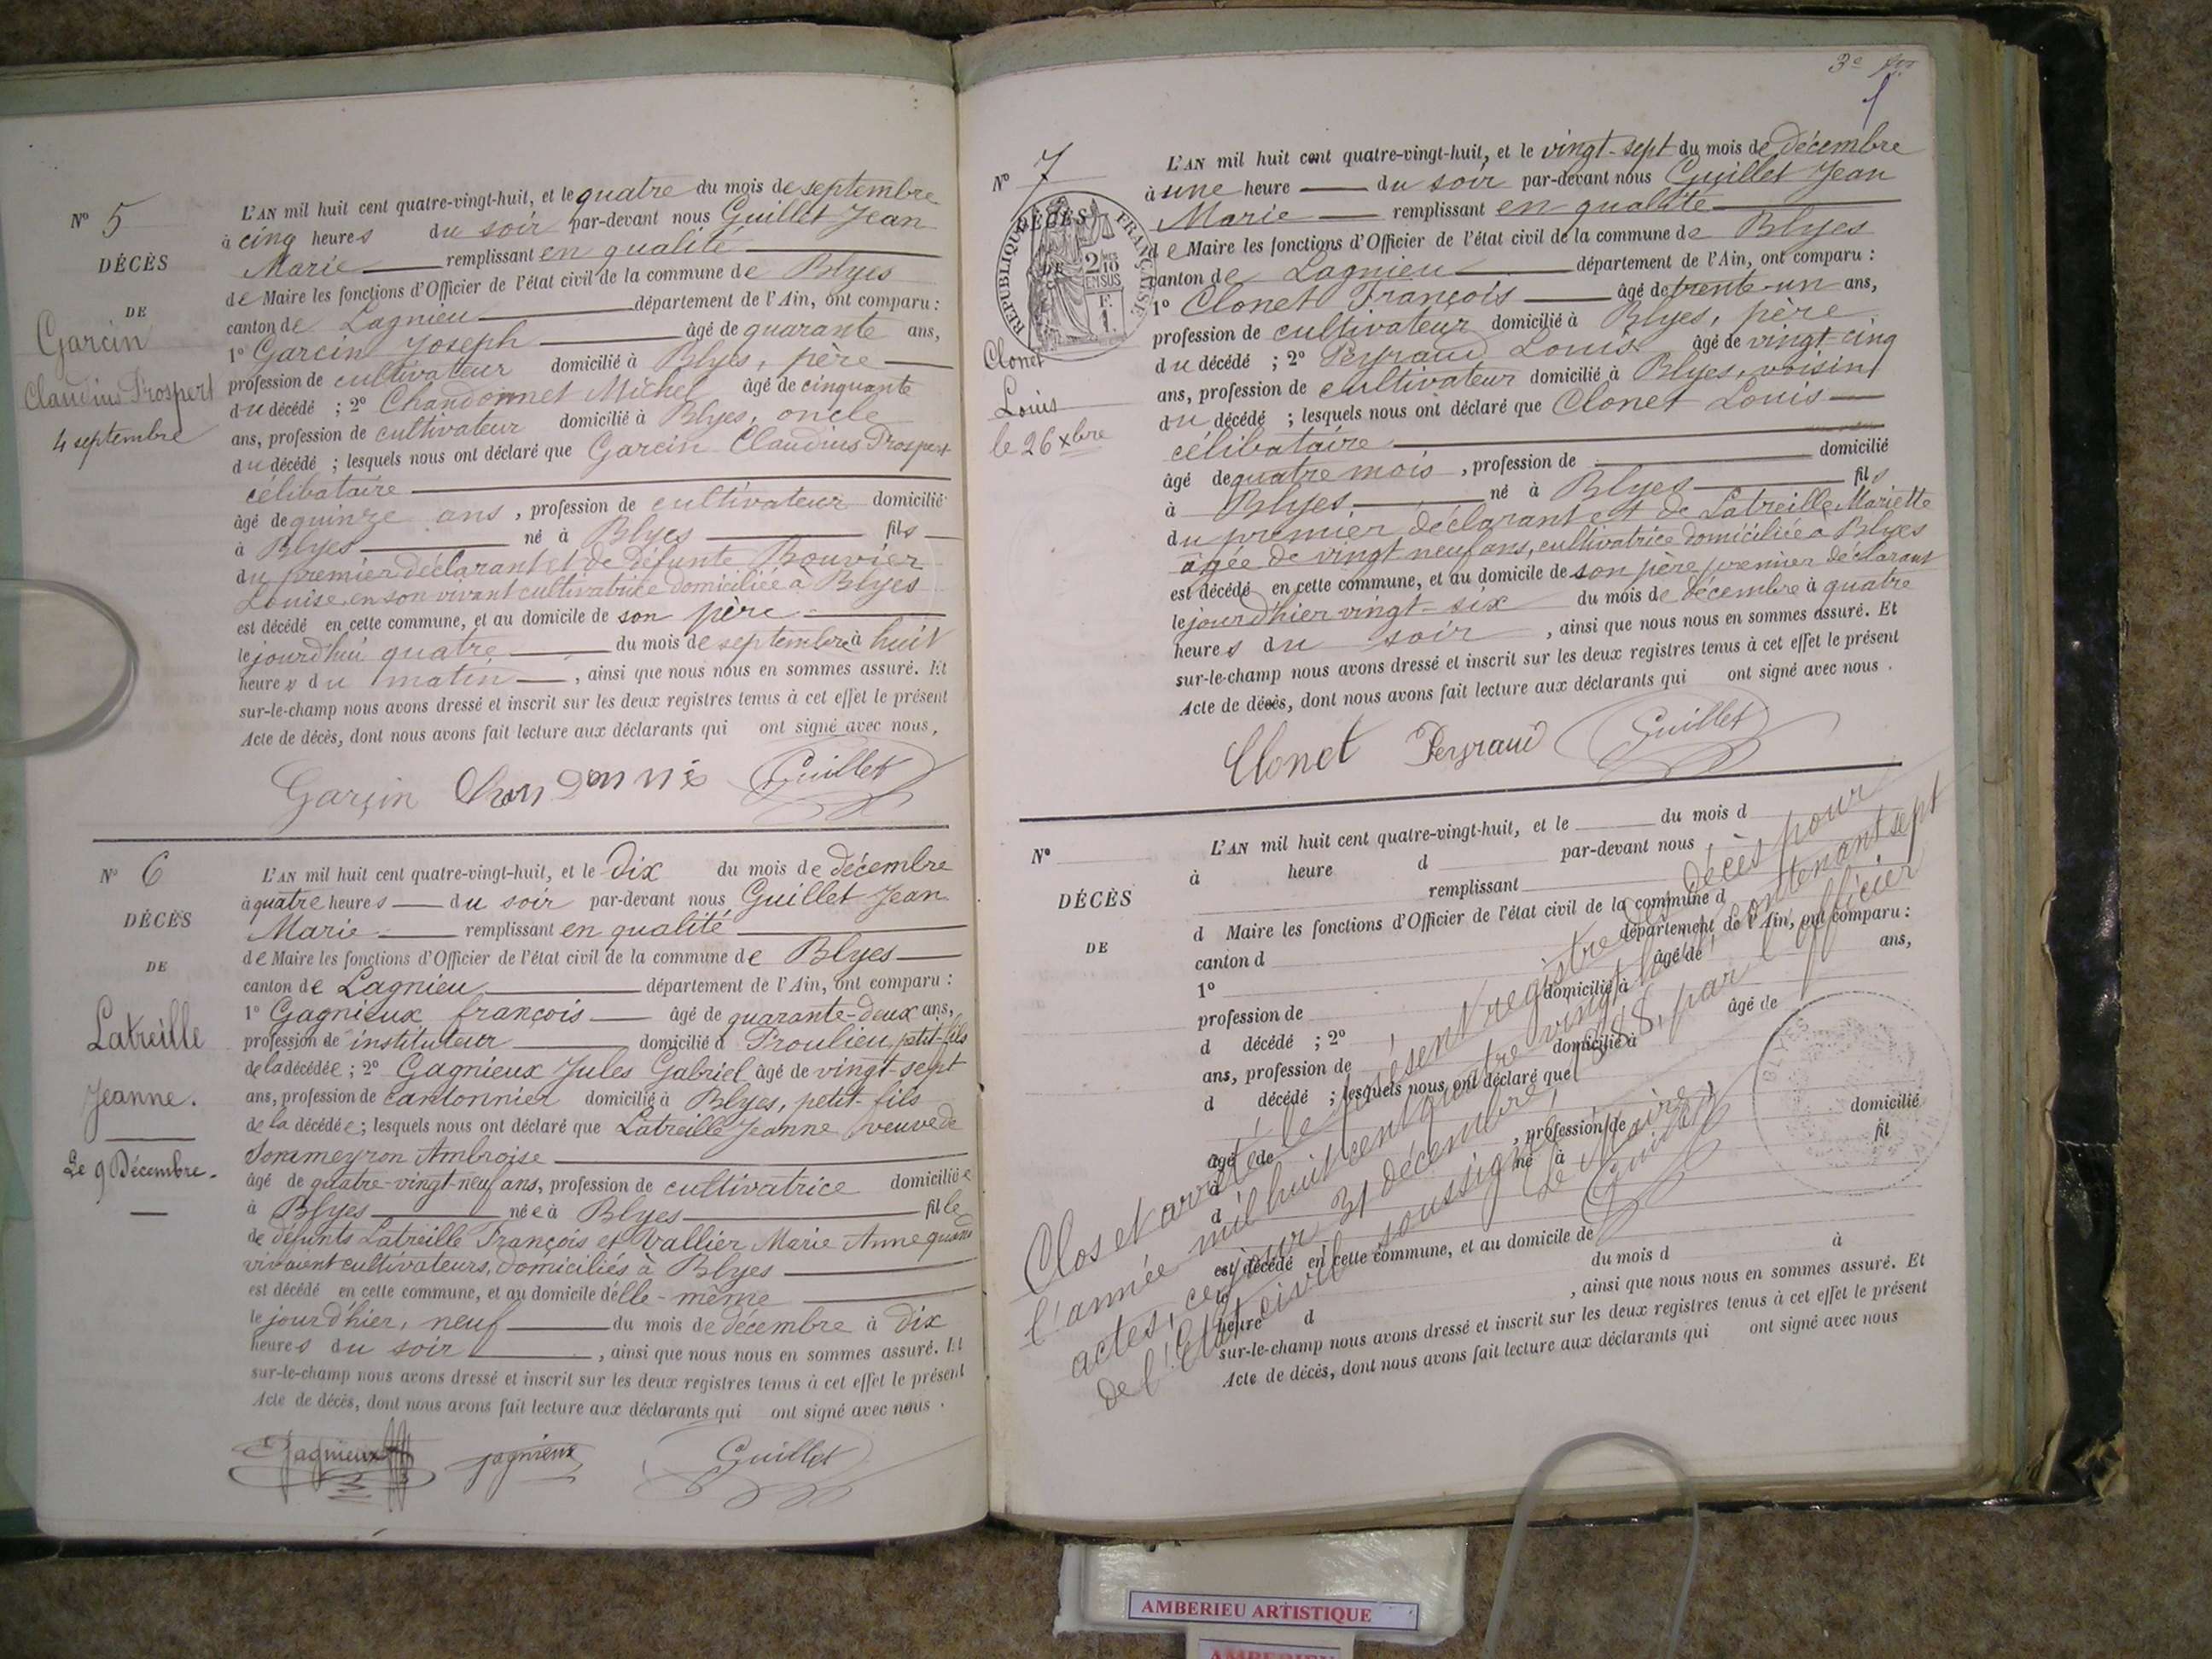 N° 5
DÉCÈS
DE
Garcin
Claudius Prospert
4 septembre
L'AN mil huit cent quatre-vingt-huit, et le quatre du mois de septembre
à cinq heures du soir par-devant nous Guillet Jean
Marie remplissant en qualité
de Maire les fonctions d'Officier de l'état civil de la commune de Blyes
canton de Lagnieu département de l'Ain, ont comparu :
1° Garcin Joseph âgé de quarante ans,
profession de cultivateur domicilié à Blyes, père
du décédé ; 2° Chandonnet Michel âgé de cinquante
ans, profession de cultivateur domicilié à Blyes, oncle
du décédé ; lesquels nous ont déclaré que Garcin Claudius Prospert
célibataire
âgé de quinze ans, profession de cultivateur domicilié
à Blyes né à Blyes fils
du premier déclarant et de défunte Bouvier
Louise, en son vivant cultivatrice domiciliée à Blyes
est décédé en cette commune, et au domicile de son père
le jourd'hui quatre du mois de septembre à huit
heures du matin, ainsi que nous nous en sommes assuré. Et
sur-le-champ nous avons dressé et inscrit sur les deux registres tenus à cet effet le présent
Acte de décès, dont nous avons fait lecture aux déclarants qui ont signé avec nous,
Garçin Guillet
N° 6
DÉCÈS
DE
Latreille
Jeanne.
Le 9 Décembre.
L'AN mil huit cent quatre-vingt-huit, et le Dix du mois de décembre
à quatre heures du soir par-devant nous Guillet Jean
Marie remplissant en qualité
de Maire les fonctions d'Officier de l'état civil de la commune de Blyes
canton de Lagnieu département de l'Ain, ont comparu :
1° Gagnieux françois âgé de quarante-deux ans,
profession de instituteur domicilié à Proulieu, petit-fils
de la décédée ; 2° Gagnieux Jules Gabriel âgé de vingt-sept
ans, profession de cantonnier domicilié à Blyes, petit-fils
de la décédée ; lesquels nous ont déclaré que Latreille Jeanne, veuve de
Sommeyron Ambroise
âgé de quatre-vingt-neuf ans, profession de cultivatrice domiciliée
à Blyes née à Blyes fille
de défunts Latreille François et Vallier Marie Anne quand
vivaient cultivateurs, domiciliés à Blyes
est décédé en cette commune, et au domicile d'elle-même
le jourd'hier, neuf du mois de décembre à dix
heures du soir, ainsi que nous nous en sommes assuré. Et
sur-le-champ nous avons dressé et inscrit sur les deux registres tenus à cet effet le présent
Acte de décès, dont nous avons fait lecture aux déclarants qui ont signé avec nous.
Gagnieux gagnieux Guillet
3e
N° 7
RÉPUBLIQUE FRANÇAISE
DÉCÈS
DE
2 10
EN SUS
F.
1.
Clonet
Louis
le 26 Xbre
L'AN mil huit cent quatre-vingt-huit, et le vingt-sept du mois de décembre
à une heure du soir par-devant nous Guillet Jean
Marie remplissant en qualité
de Maire les fonctions d'Officier de l'état civil de la commune de Blyes
canton de Lagnieu département de l'Ain, ont comparu :
1° Clonet François âgé de trente-un ans,
profession de cultivateur domicilié à Blyes, père
du décédé ; 2° Peyraud Louis âgé de vingt-cinq
ans, profession de cultivateur domicilié à Blyes, voisin
du décédé ; lesquels nous ont déclaré que Clonet Louis
célibataire
âgé de quatre mois, profession de domicilié
à Blyes, né à Blyes fils
du premier déclarant et de Latreille Mariette
âgée de vingt neuf ans, cultivatrice domiciliée à Blyes
est décédé en cette commune, et au domicile de son père premier déclarant
le jourd'hier vingt-six du mois de décembre à quatre
heures du soir, ainsi que nous nous en sommes assuré. Et
sur-le-champ nous avons dressé et inscrit sur les deux registres tenus à cet effet le présent
Acte de décès, dont nous avons fait lecture aux déclarants qui ont signé avec nous.
Clonet Peyraud Guillet
N°
DÉCÈS
DE
L'AN mil huit cent quatre-vingt-huit, et le du mois d
à heure d par-devant nous
remplissant
d Maire les fonctions d'Officier de l'état civil de la commune d
canton d département de l'Ain, ont comparu :
1° âgé de ans,
profession de domicilié à
d décédé ; 2° âgé de
ans, profession de domicilié à
d décédé ; lesquels nous ont déclaré que
âgé de , profession de domicilié
à né à fil
d
est décédé en cette commune, et au domicile de
le du mois d à
heure d , ainsi que nous nous en sommes assuré. Et
sur-le-champ nous avons dressé et inscrit sur les deux registres tenus à cet effet le présent
Acte de décès, dont nous avons fait lecture aux déclarants qui ont signé avec nous
Clos et arrêté le présent registre des décès pour
l'année mil huit cent quatre vingt huit, contenant sept
actes, ce jour 31 décembre 1888, par l'officier
de l'Etat civil soussigné.
Le Maire,
Guillet
BLYES
AIN
AMBERIEU ARTISTIQUE
AMBERIEU